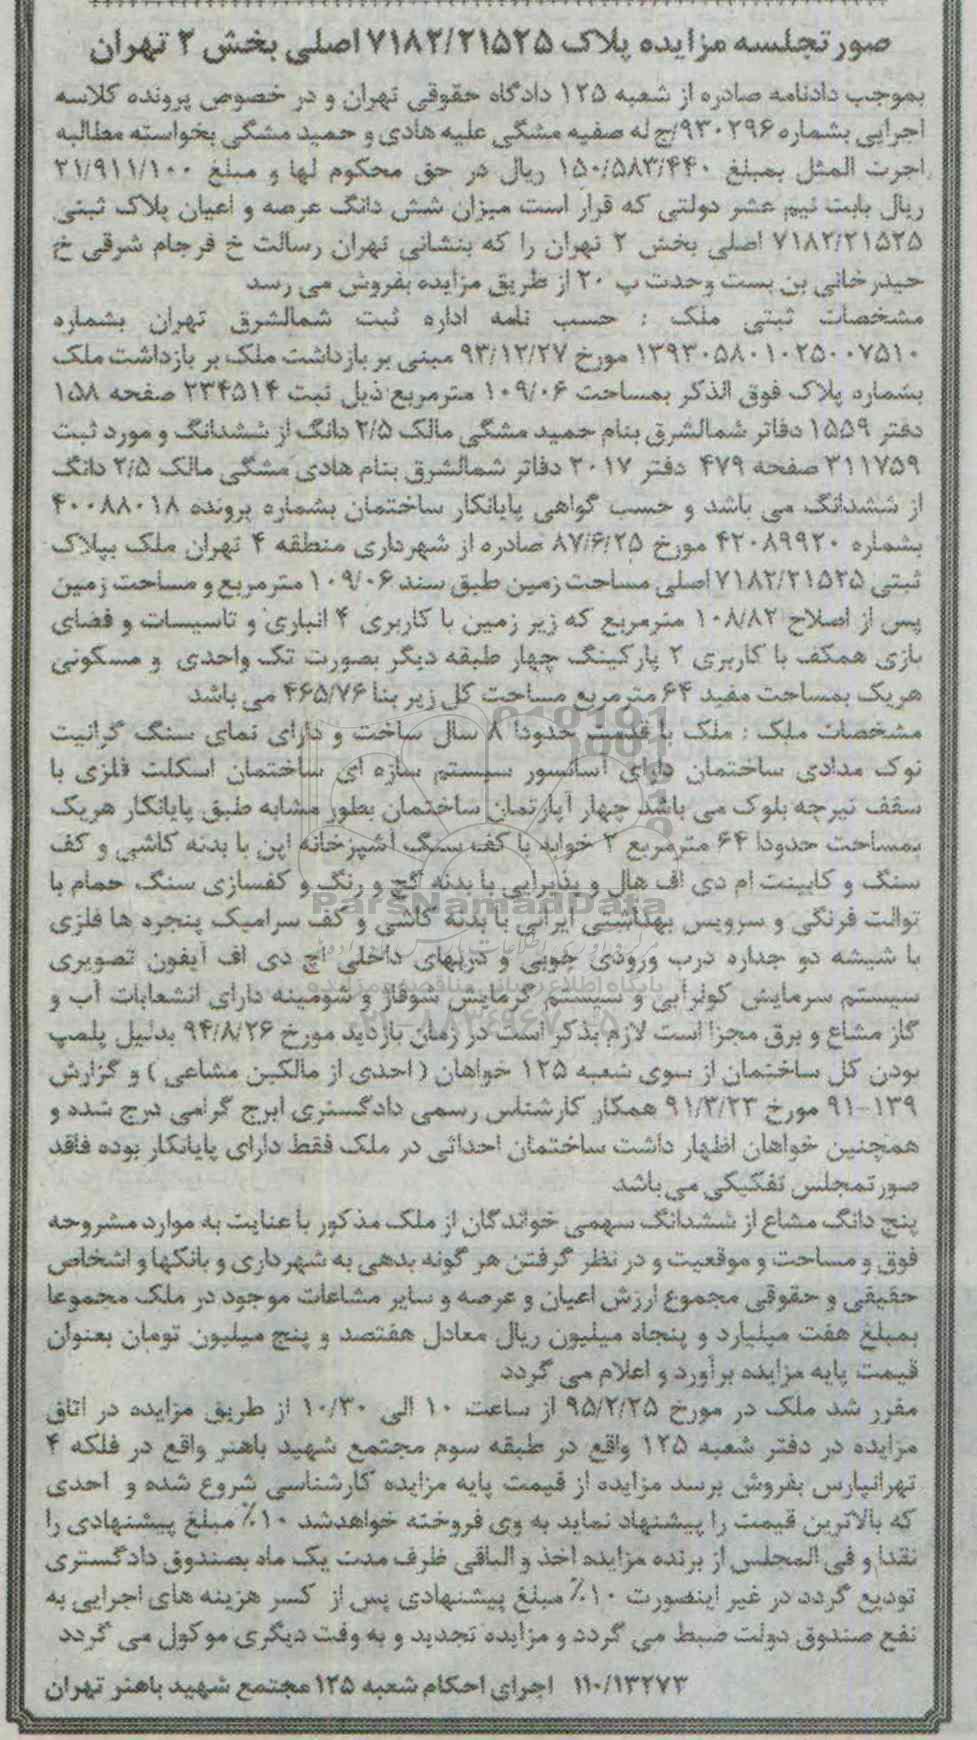 صورتجلسه مزایده پلاک ۷۱۸۲/۲۱۵۲۵ اصلی بخش ۲ تهران
بموجب دادنامه صادره از شعبه ۱۲۵ دادگاه حقوقی تهران و در خصوص پرونده کلاسه
اجرایی بشماره ۹۳۰۲۹۶/ج له صفیه مشگی علیه هادی و حمید مشگی بخواسته مطالبه
اجرت المثل بمبلغ ۱۵۰/۵۸۳/۴۴۰ ریال در حق محکوم لها و مبلغ ۲۱/۹۱۱/۱۰۰
ریال بابت نیم عشر دولتی که قرار است میزان شش دانگ عرصه و اعیان پلاک ثبتی
۷۱۸۲/۲۱۵۲۵ اصلی بخش ۲ تهران را که بنشانی تهران رسالت خ فرجام شرقی خ
حیدرخانی بن بست وحدت پ ۲۰ از طریق مزایده بفروش می رسد
مشخصات ثبتی ملک : حسب نامه اداره ثبت شمالشرق تهران بشماره
۱۳۹۳۰۵۸۰۱۰۲۵۰۰۷۵۱۰ مورخ ۹۳/۱۲/۲۷ مبنی بر بازداشت ملک بر بازداشت ملک
بشماره پلاک فوق الذکر بمساحت ۱۰۹/۰۶ مترمربع ذیل ثبت ۲۳۴۵۱۴ صفحه ۱۵۸
دفتر ۱۵۵۹ دفاتر شمالشرق بنام حمید مشگی مالک ۲/۵ دانگ از ششدانگ و مورد ثبت
۳۱۱۷۵۹ صفحه ۴۷۹ دفتر ۲۰۱۷ دفاتر شمالشرق بنام هادی مشگی مالک ۲/۵ دانگ
از ششدانگ می باشد و حسب گواهی پایانکار ساختمان بشماره پرونده ۴۰۰۸۸۰۱۸
بشماره ۴۲۰۸۹۹۲۰ مورخ ۸۷/۶/۲۵ صادره از شهرداری منطقه ۴ تهران ملک بپلاک
ثبتی ۷۱۸۲/۲۱۵۲۵ اصلی مساحت زمین طبق سند ۱۰۹/۰۶ مترمربع و مساحت زمین
پس از اصلاح ۱۰۸/۸۲ مترمربع که زیر زمین با کاربری ۴ انباری و تاسیسات و فضای
بازی همکف با کاربری ۲ پارکینگ چهار طبقه دیگر بصورت تک واحدی و مسکونی
هریک بمساحت مفید ۶۴ مترمربع مساحت کل زیربنا ۴۶۵/۷۶ می باشد
مشخصات ملک : ملک با قدمت حدودا ۸ سال ساخت و دارای نمای سنگ گرانیت
نوک مدادی ساختمان دارای آسانسور سیستم سازه ای ساختمان اسکلت فلزی با
سقف تیرچه بلوک می باشد چهار آپارتمان ساختمان بطور مشابه طبق پایانکار هریک
بمساحت حدودا ۶۴ مترمربع ۲ خوابه با کف سنگ آشپزخانه اپن با بدنه کاشی و کف
سنگ و کابینت ام دی اف هال و پذیرایی با بدنه گچ و رنگ و کفسازی سنگ حمام با
توالت فرنگی و سرویس بهداشتی ایرانی با بدنه کاشی و کف سرامیک پنجره ها فلزی
با شیشه دو جداره درب ورودی چوبی و دربهای داخلی اچ دی اف آیفون تصویری
سیستم سرمایش کولرآبی و سیستم گرمایش شوفاژ و شومینه دارای انشعابات آب و
گاز مشاع و برق مجزا است لازم بذکر است در زمان بازدید مورخ ۹۴/۸/۲۶ بدلیل پلمپ
بودن کل ساختمان از سوی شعبه ۱۲۵ خواهان ( احدی از مالکین مشاعی ) و گزارش
۹۱-۱۳۹ مورخ ۹۱/۳/۲۳ همکار کارشناس رسمی دادگستری ایرج گرامی درج شده و
همچنین خواهان اظهار داشت ساختمان احداثی در ملک فقط دارای پایانکار بوده فاقد
صورتمجلس تفکیکی می باشد
پنج دانگ مشاع از ششدانگ سهمی خواندگان از ملک مذکور با عنایت به موارد مشروحه
فوق و مساحت و موقعیت و در نظر گرفتن هر گونه بدهی به شهرداری و بانکها و اشخاص
حقیقی و حقوقی مجموع ارزش اعیان و عرصه و سایر مشاعات موجود در ملک مجموعا
بمبلغ هفت میلیارد و پنجاه میلیون ریال معادل هفتصد و پنج میلیون تومان بعنوان
قیمت پایه مزایده برآورد و اعلام می گردد
مقرر شد ملک در مورخ ۹۵/۲/۲۵ از ساعت ۱۰ الی ۱۰/۳۰ از طریق مزایده در اتاق
مزایده در دفتر شعبه ۱۲۵ واقع در طبقه سوم مجتمع شهید باهنر واقع در فلکه ۴
تهرانپارس بفروش برسد مزایده از قیمت پایه مزایده کارشناسی شروع شده و احدی
که بالاترین قیمت را پیشنهاد نماید به وی فروخته خواهدشد ۱۰٪ مبلغ پیشنهادی را
نقدا و فی المجلس از برنده مزایده اخذ و الباقی ظرف مدت یک ماه بصندوق دادگستری
تودیع گردد در غیر اینصورت ۱۰٪ مبلغ پیشنهادی پس از کسر هزینه های اجرایی به
نفع صندوق دولت ضبط می گردد و مزایده تجدید و به وقت دیگری موکول می گردد
۱۱۰/۱۳۲۷۳ اجرای احکام شعبه ۱۲۵ مجتمع شهید باهنر تهران
ParsNamadData